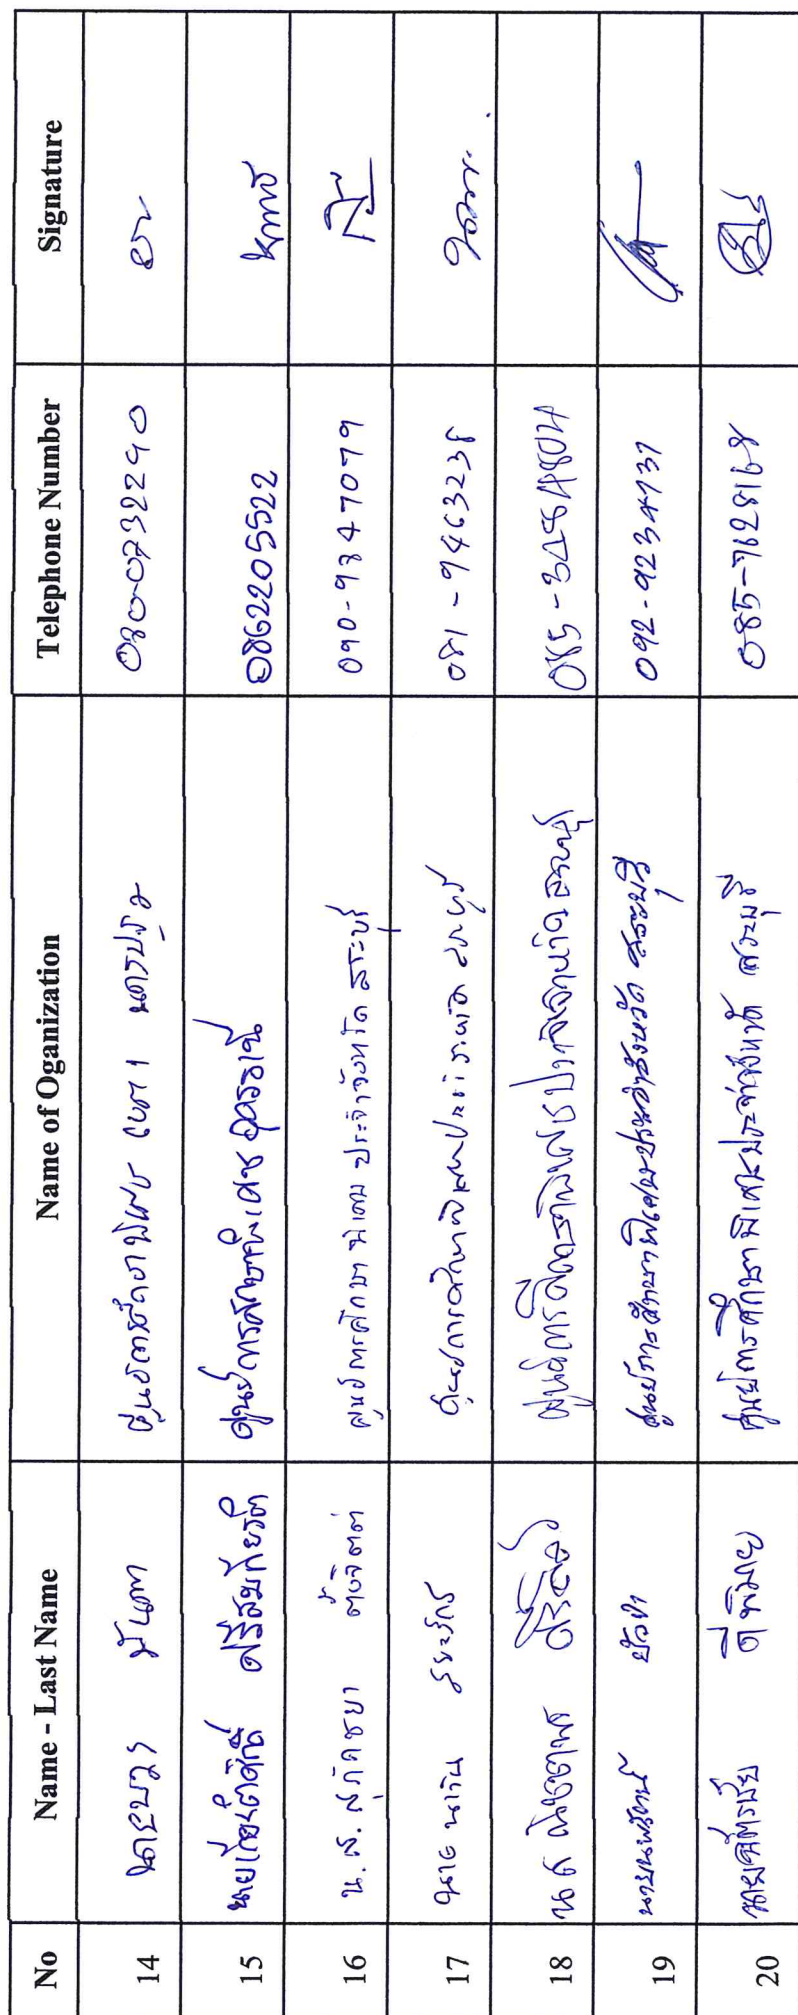 No Name - Last Name Name of Oganization Telephone Number Signature
14 นายบวร มันตา ศูนย์การศึกษาพิเศษ เขต 1 นครปฐม 080-0232290
15 นายเกียรติศักดิ์ ศรีสมเกียรติ ศูนย์การศึกษาพิเศษ อุดรธานี 0862205522
16 น.ส. สุภัคชยา ตั้งจิตต์ ศูนย์การศึกษาพิเศษ ประจำจังหวัด สระบุรี 090-9847079
17 นาย นาวิน ศูนย์การศึกษาพิเศษประจำจังหวัด สระบุรี 081-9463238
18 นส ศูนย์การศึกษาพิเศษประจำจังหวัด สระบุรี 085-3484804
19 นายนพรัตน์ บัวชา ศูนย์การศึกษาพิเศษประจำจังหวัด สระบุรี 092-9234731
20 นายฉัตรชัย ดีพิมาย ศูนย์การศึกษาพิเศษประจำจังหวัด สระบุรี 085-7628168